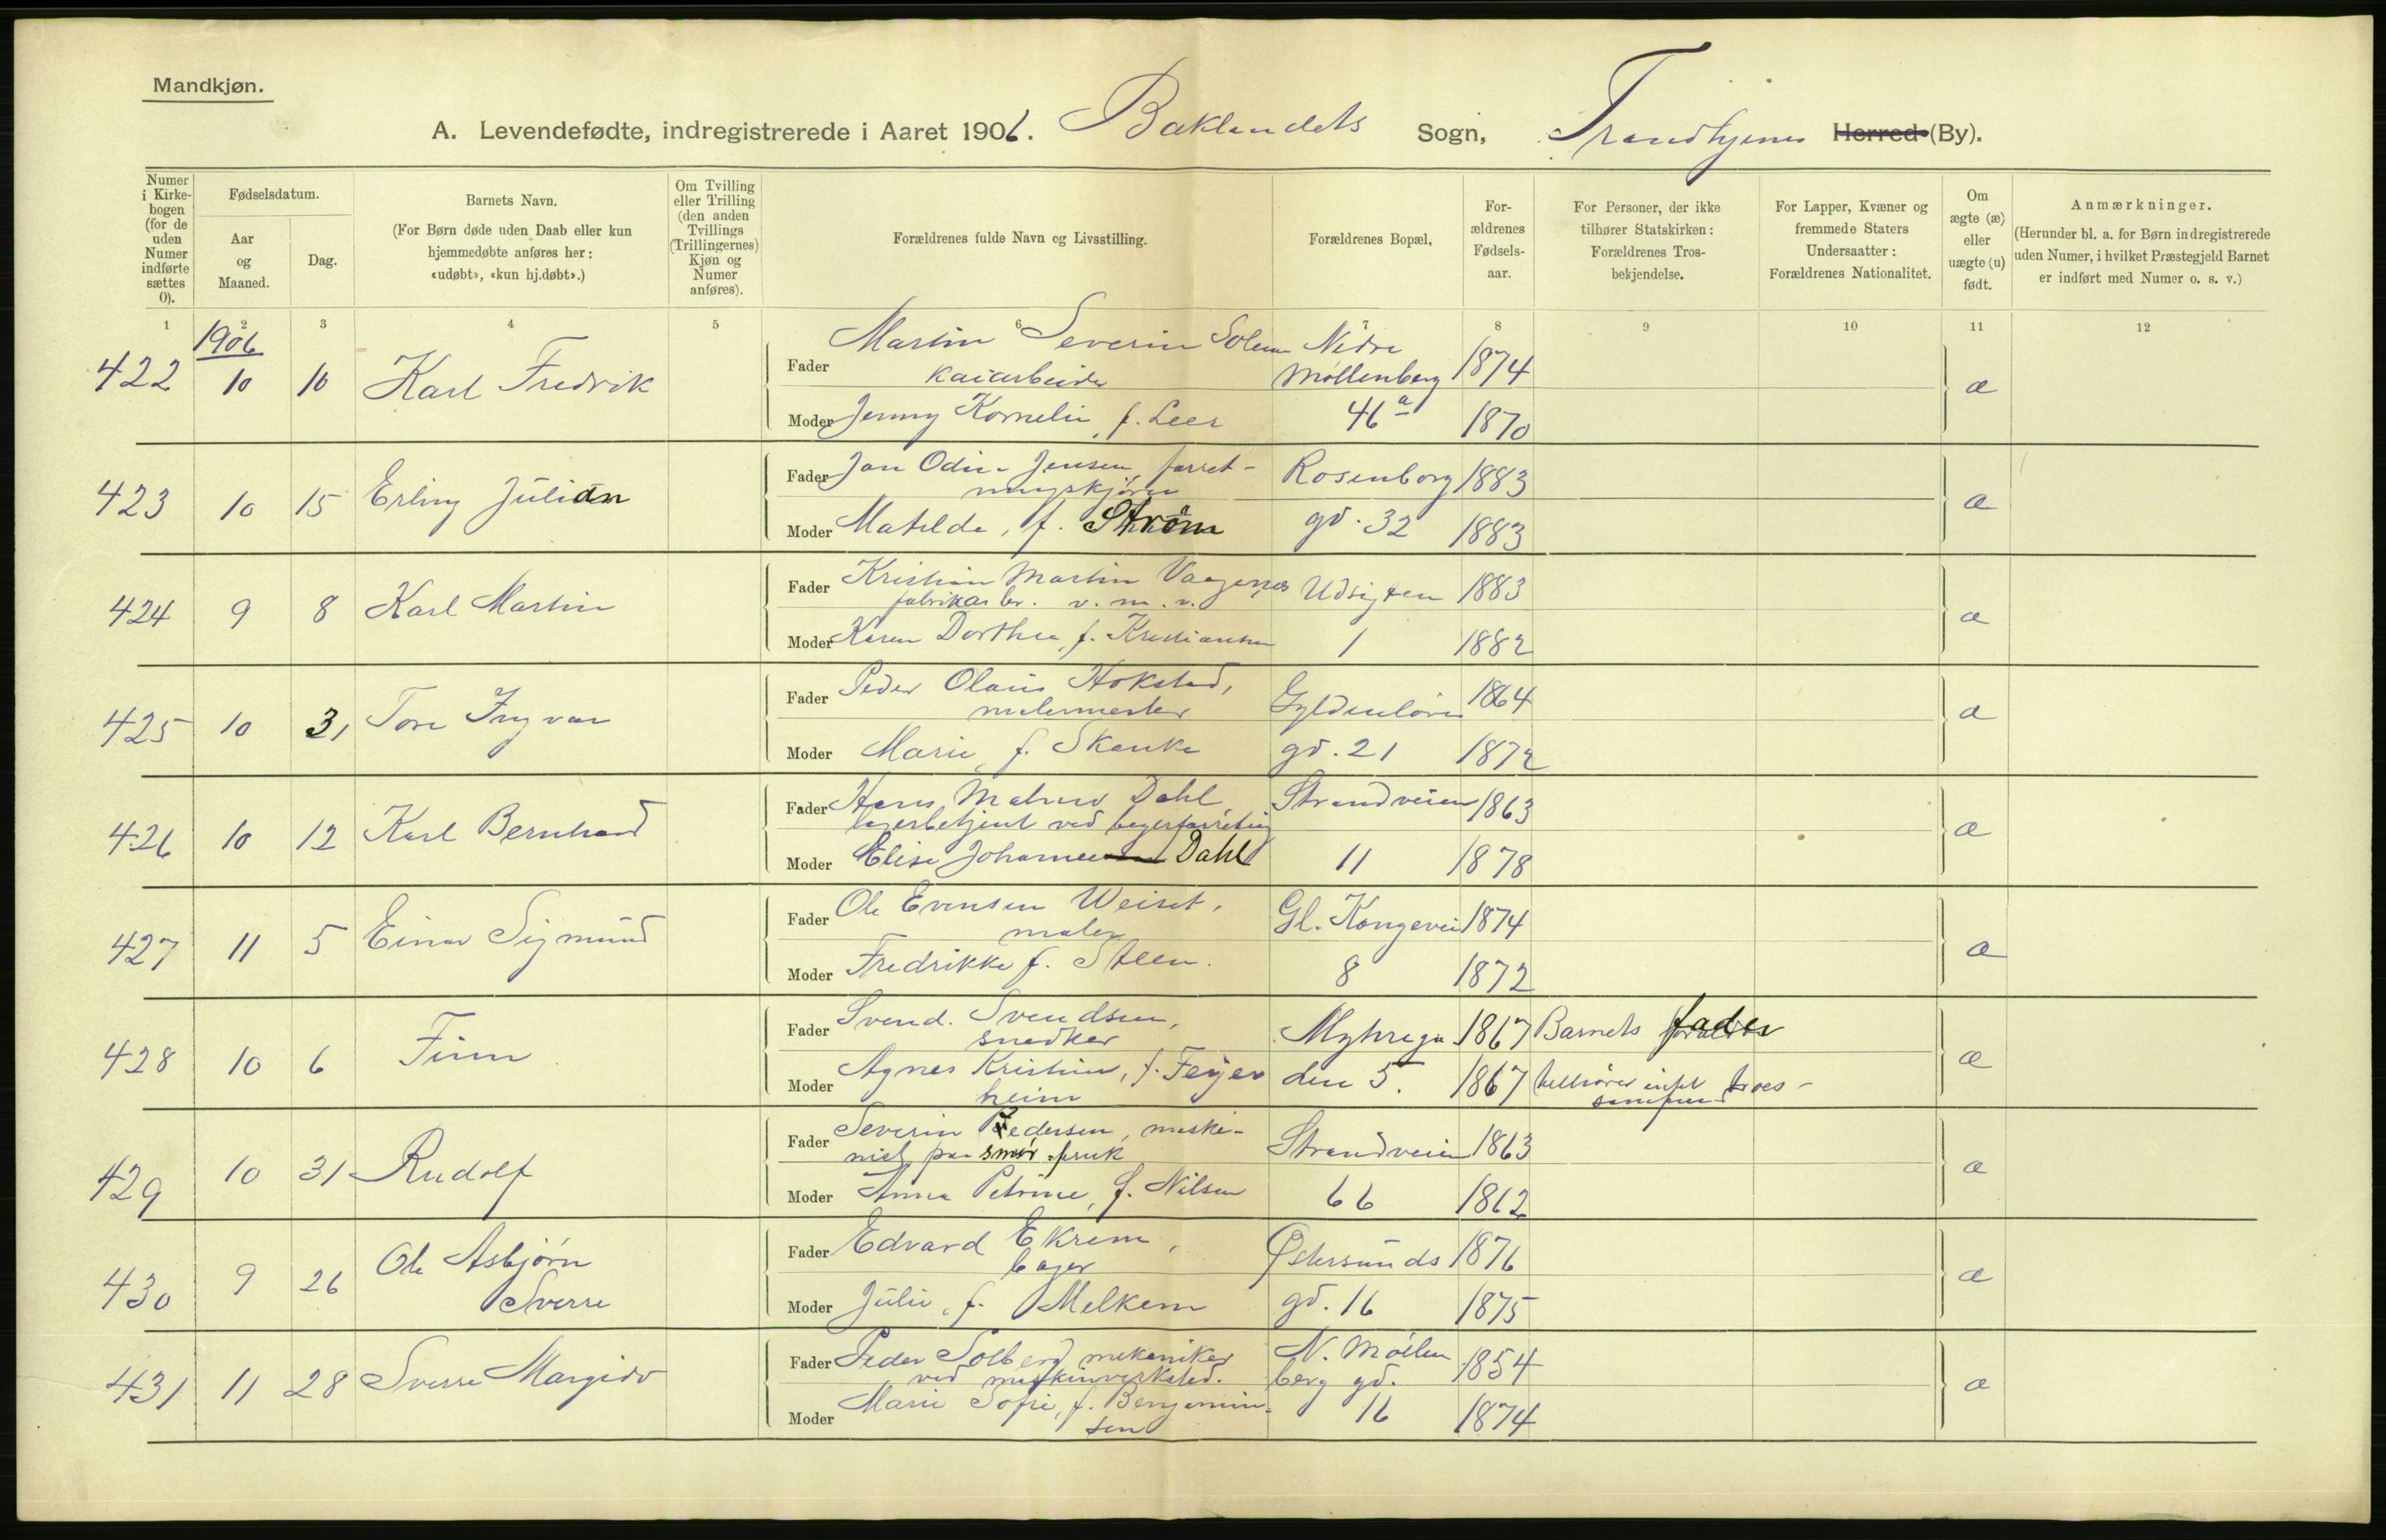 Mandkjøn.
A. Levendefødte, indregistrerede i Aaret 1906. Baklandets Sogn, Trondhjems Herred (By).
Numer i Kirkebogen (for de uden Numer indførte sættes 0).
Fødselsdatum.
Aar og Maaned.
Dag.
Barnets Navn.
(For Børn døde uden Daab eller kun hjemmedøbte anføres her: «udøbt», «kun hj.døbt».)
Om Tvilling eller Trilling (den anden Tvillings (Trillingernes) Kjøn og Numer anføres).
Forældrenes fulde Navn og Livsstilling.
Forældrenes Bopæl.
Forældrenes Fødselsaar.
For Personer, der ikke tilhører Statskirken: Forældrenes Trosbekjendelse.
For Lapper, Kvæner og fremmede Staters Undersaatter: Forældrenes Nationalitet.
Om ægte (æ) eller uægte (u) født.
Anmærkninger.
(Herunder bl. a. for Børn indregistrerede uden Numer, i hvilket Præstegjeld Barnet er indført med Numer o. s. v.)
1 2 3 4 5 6 7 8 9 10 11 12
1906
422 10 10 Karl Fredrik Fader Martin Severin Solem Nedre 1874 æ
kaiarbeider Møllenberg
Moder Jenny Kornelie, f. Leer 46 a 1870
423 10 15 Erling Julian Fader Jon Odin Jensen, forret- Rosenborg 1883 æ
ningskjører
Moder Matilde, f. Strøm gd. 32 1883
424 9 8 Karl Martin Fader Kristian Martin Vaagenes Udsigten 1883 æ
fabrikarb. v. m. v.
Moder Karen Dorthea, f. Kristiansen 1 1882
425 10 31 Tore Ingvar Fader Peder Olaus Hokstad, Gyldenløves 1864 æ
malermester
Moder Marie, f. Skanke gd. 21 1872
426 10 12 Karl Bernhard Fader Hans Dahl, Strandveien 1863 æ
lagerbetjent ved
Moder Elise Johanne Dahl 11 1878
427 11 5 Einar Sigmund Fader Ole Evensen Weiset, Gl. Kongevei 1874 æ
maler
Moder Fredrikke f. Steen. 8 1872
428 10 6 Finn Fader Svend Svendsen, Myhrega 1867 Barnets fader æ
snedker
Moder Agnes Kristine, f. Feijer den 5. 1867 tilhører intet troes-
heim samfund
429 10 31 Rudolf Fader Severin Pedersen, maski- Strandveien 1863 æ
nist paa smør
Moder Anna Petrine, f. Nilsen 66 1862
430 9 26 Ole Asbjørn Fader Edvard Ekrem, Østersunds 1876 æ
Sverre bager
Moder Julie, f. Melkem gd. 16 1875
431 11 28 Sverre Margido Fader Peder Solberg mekaniker N. Møllen 1854 æ
ved maskinverksted. berg gd.
Moder Marie Sofie, f. Benjamin- 16 1874
sen